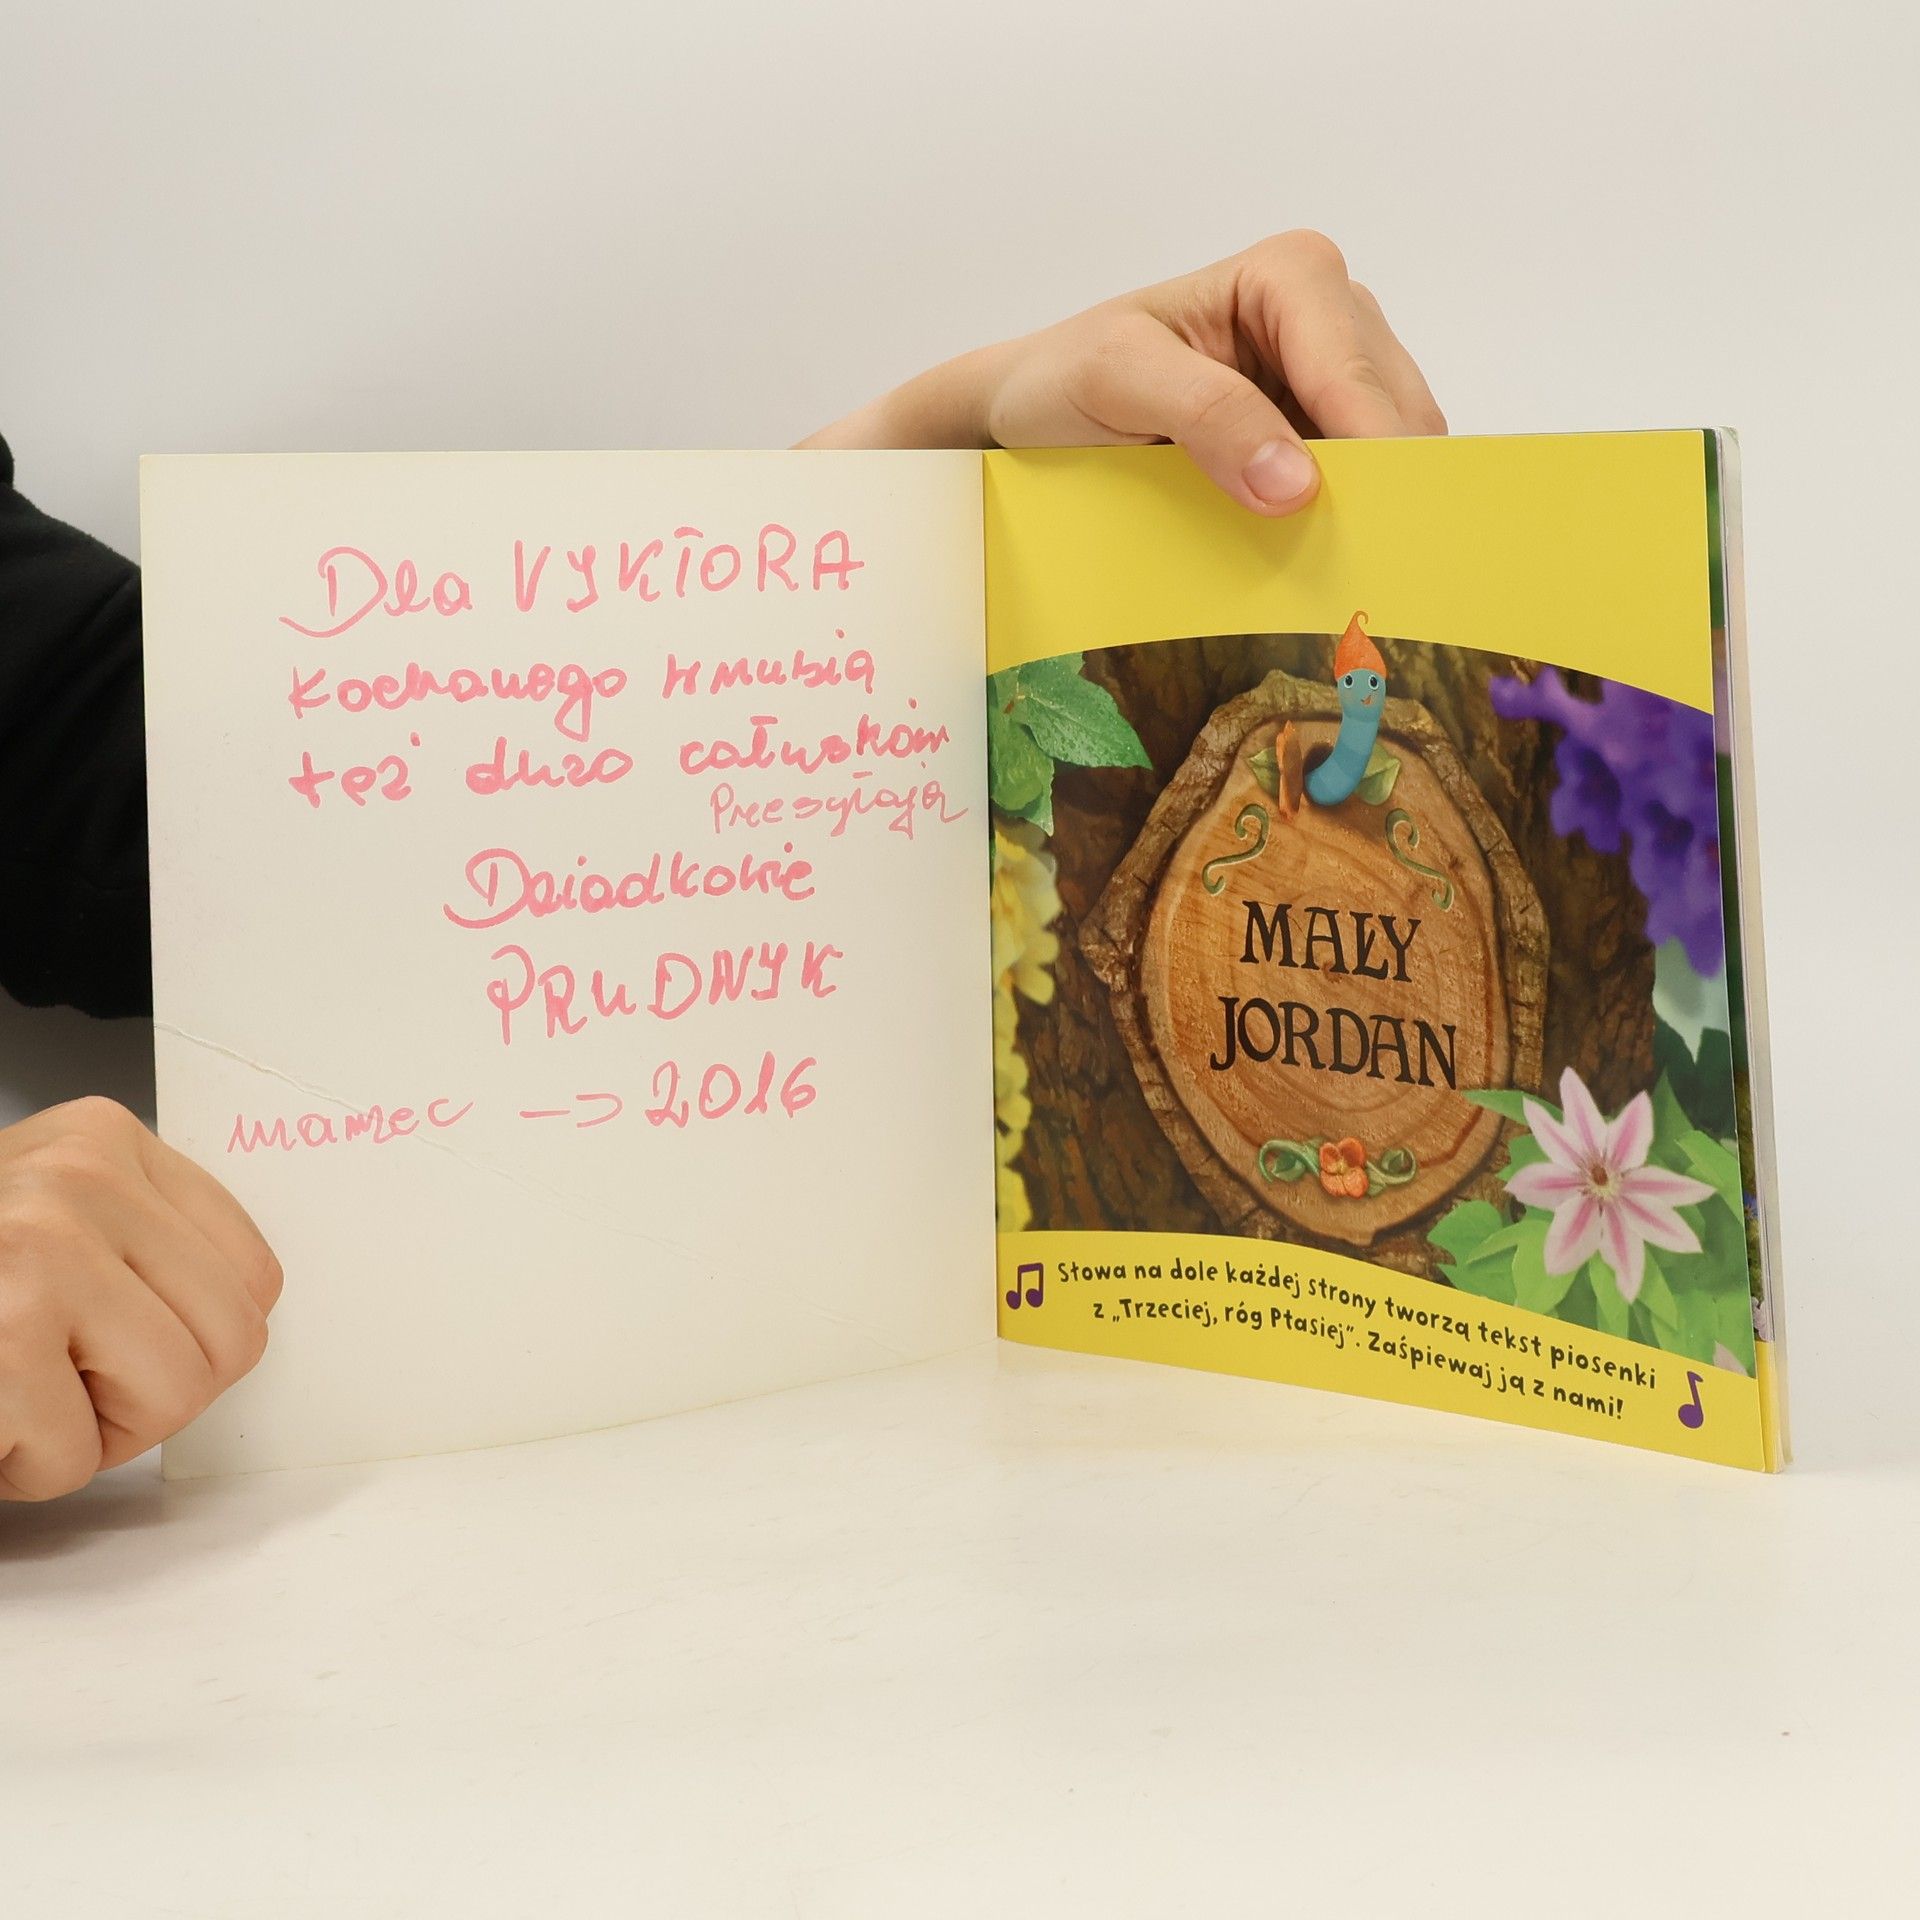 Dla VYKTORA
Kochanego wnusia
też dużo całusków
Przesyłają
Dziadkowie
PRUDNYK
marzec -> 2016
MAŁY
JORDAN
Słowa na dole każdej strony tworzą tekst piosenki
z „Trzeciej, róg Ptasiej”. Zaśpiewaj ją z nami!